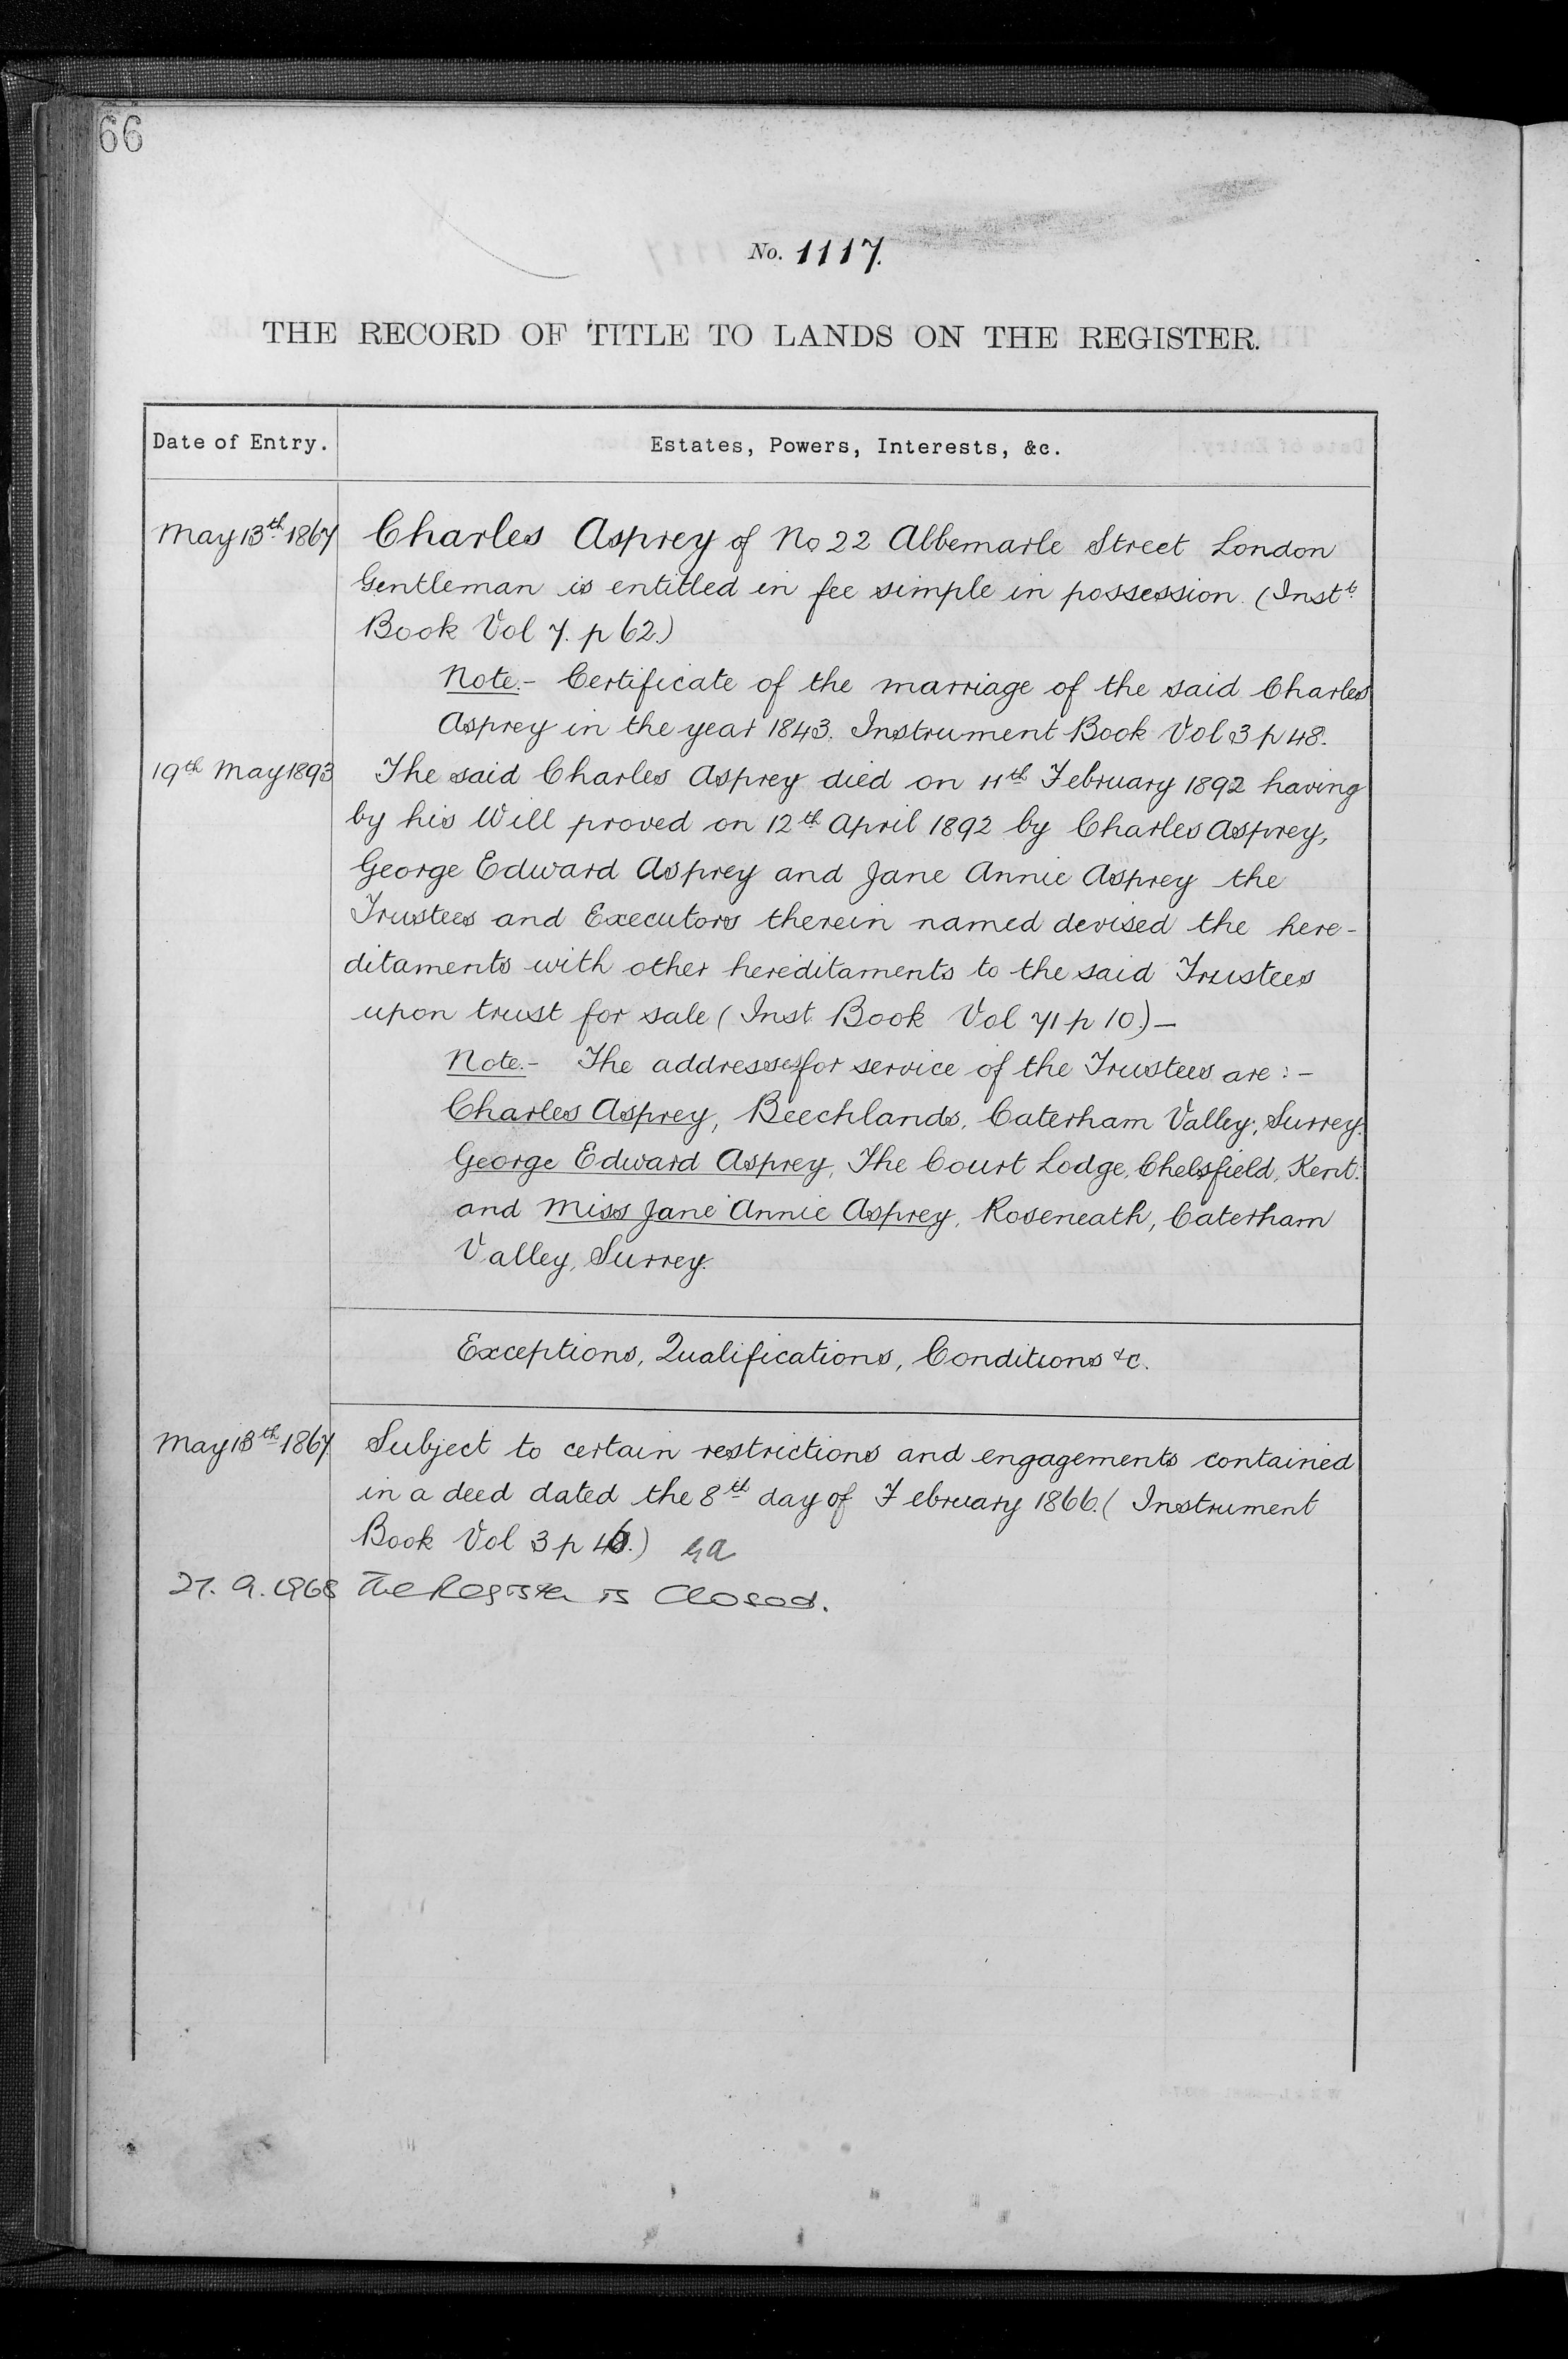 66
No. 1117.
THE RECORD OF TITLE TO LANDS ON THE REGISTER.
Date of Entry.
Estates, Powers, Interests, &c.
May 13th 1867 Charles Asprey of No 22 Albemarle Street London
Gentleman is entitled in fee simple in possession. (Instt.
Book Vol 7. p 62.)
Note.- Certificate of the marriage of the said Charles
Asprey in the year 1843. Instrument Book Vol 3 p 48.
19th May 1893 The said Charles Asprey died on 11th February 1892 having
by his Will proved on 12th April 1892 by Charles Asprey,
George Edward Asprey and Jane Annie Asprey the
Trustees and Executors therein named devised the here-
ditaments with other hereditaments to the said Trustees
upon trust for sale (Inst. Book Vol 71 p 10.)—
Note.- The addresses for service of the Trustees are :-
Charles Asprey, Beechlands, Caterham Valley, Surrey.
George Edward Asprey, The Court Lodge, Chelsfield, Kent.
and Miss Jane Annie Asprey, Roseneath, Caterham
Valley, Surrey.
Exceptions, Qualifications, Conditions &c.
May 13th 1867 Subject to certain restrictions and engagements contained
in a deed dated the 8th day of February 1866. (Instrument
Book Vol 3 p 46.)
27. 9. 1968 The Register is Closed.